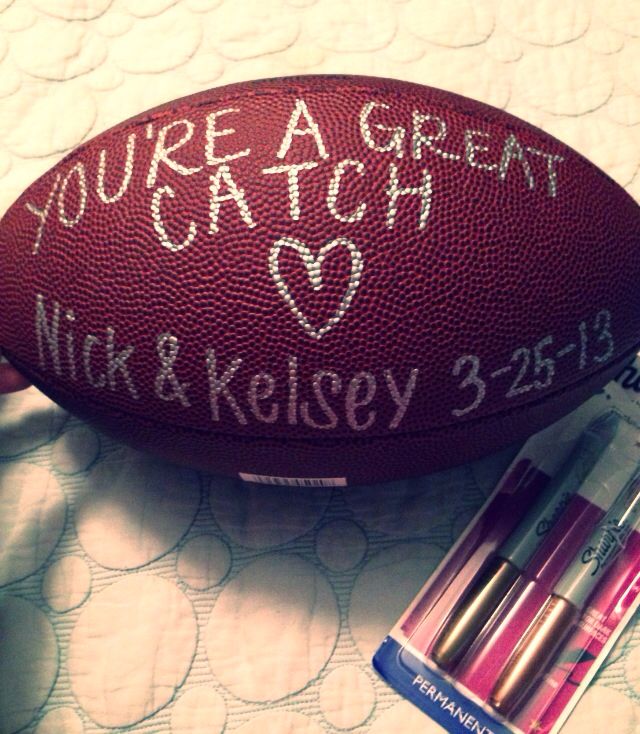 YOU'RE A GREAT
CATCH
Nick & Kelsey 3-25-13
Sharpie
Sharpie
PERMANENT